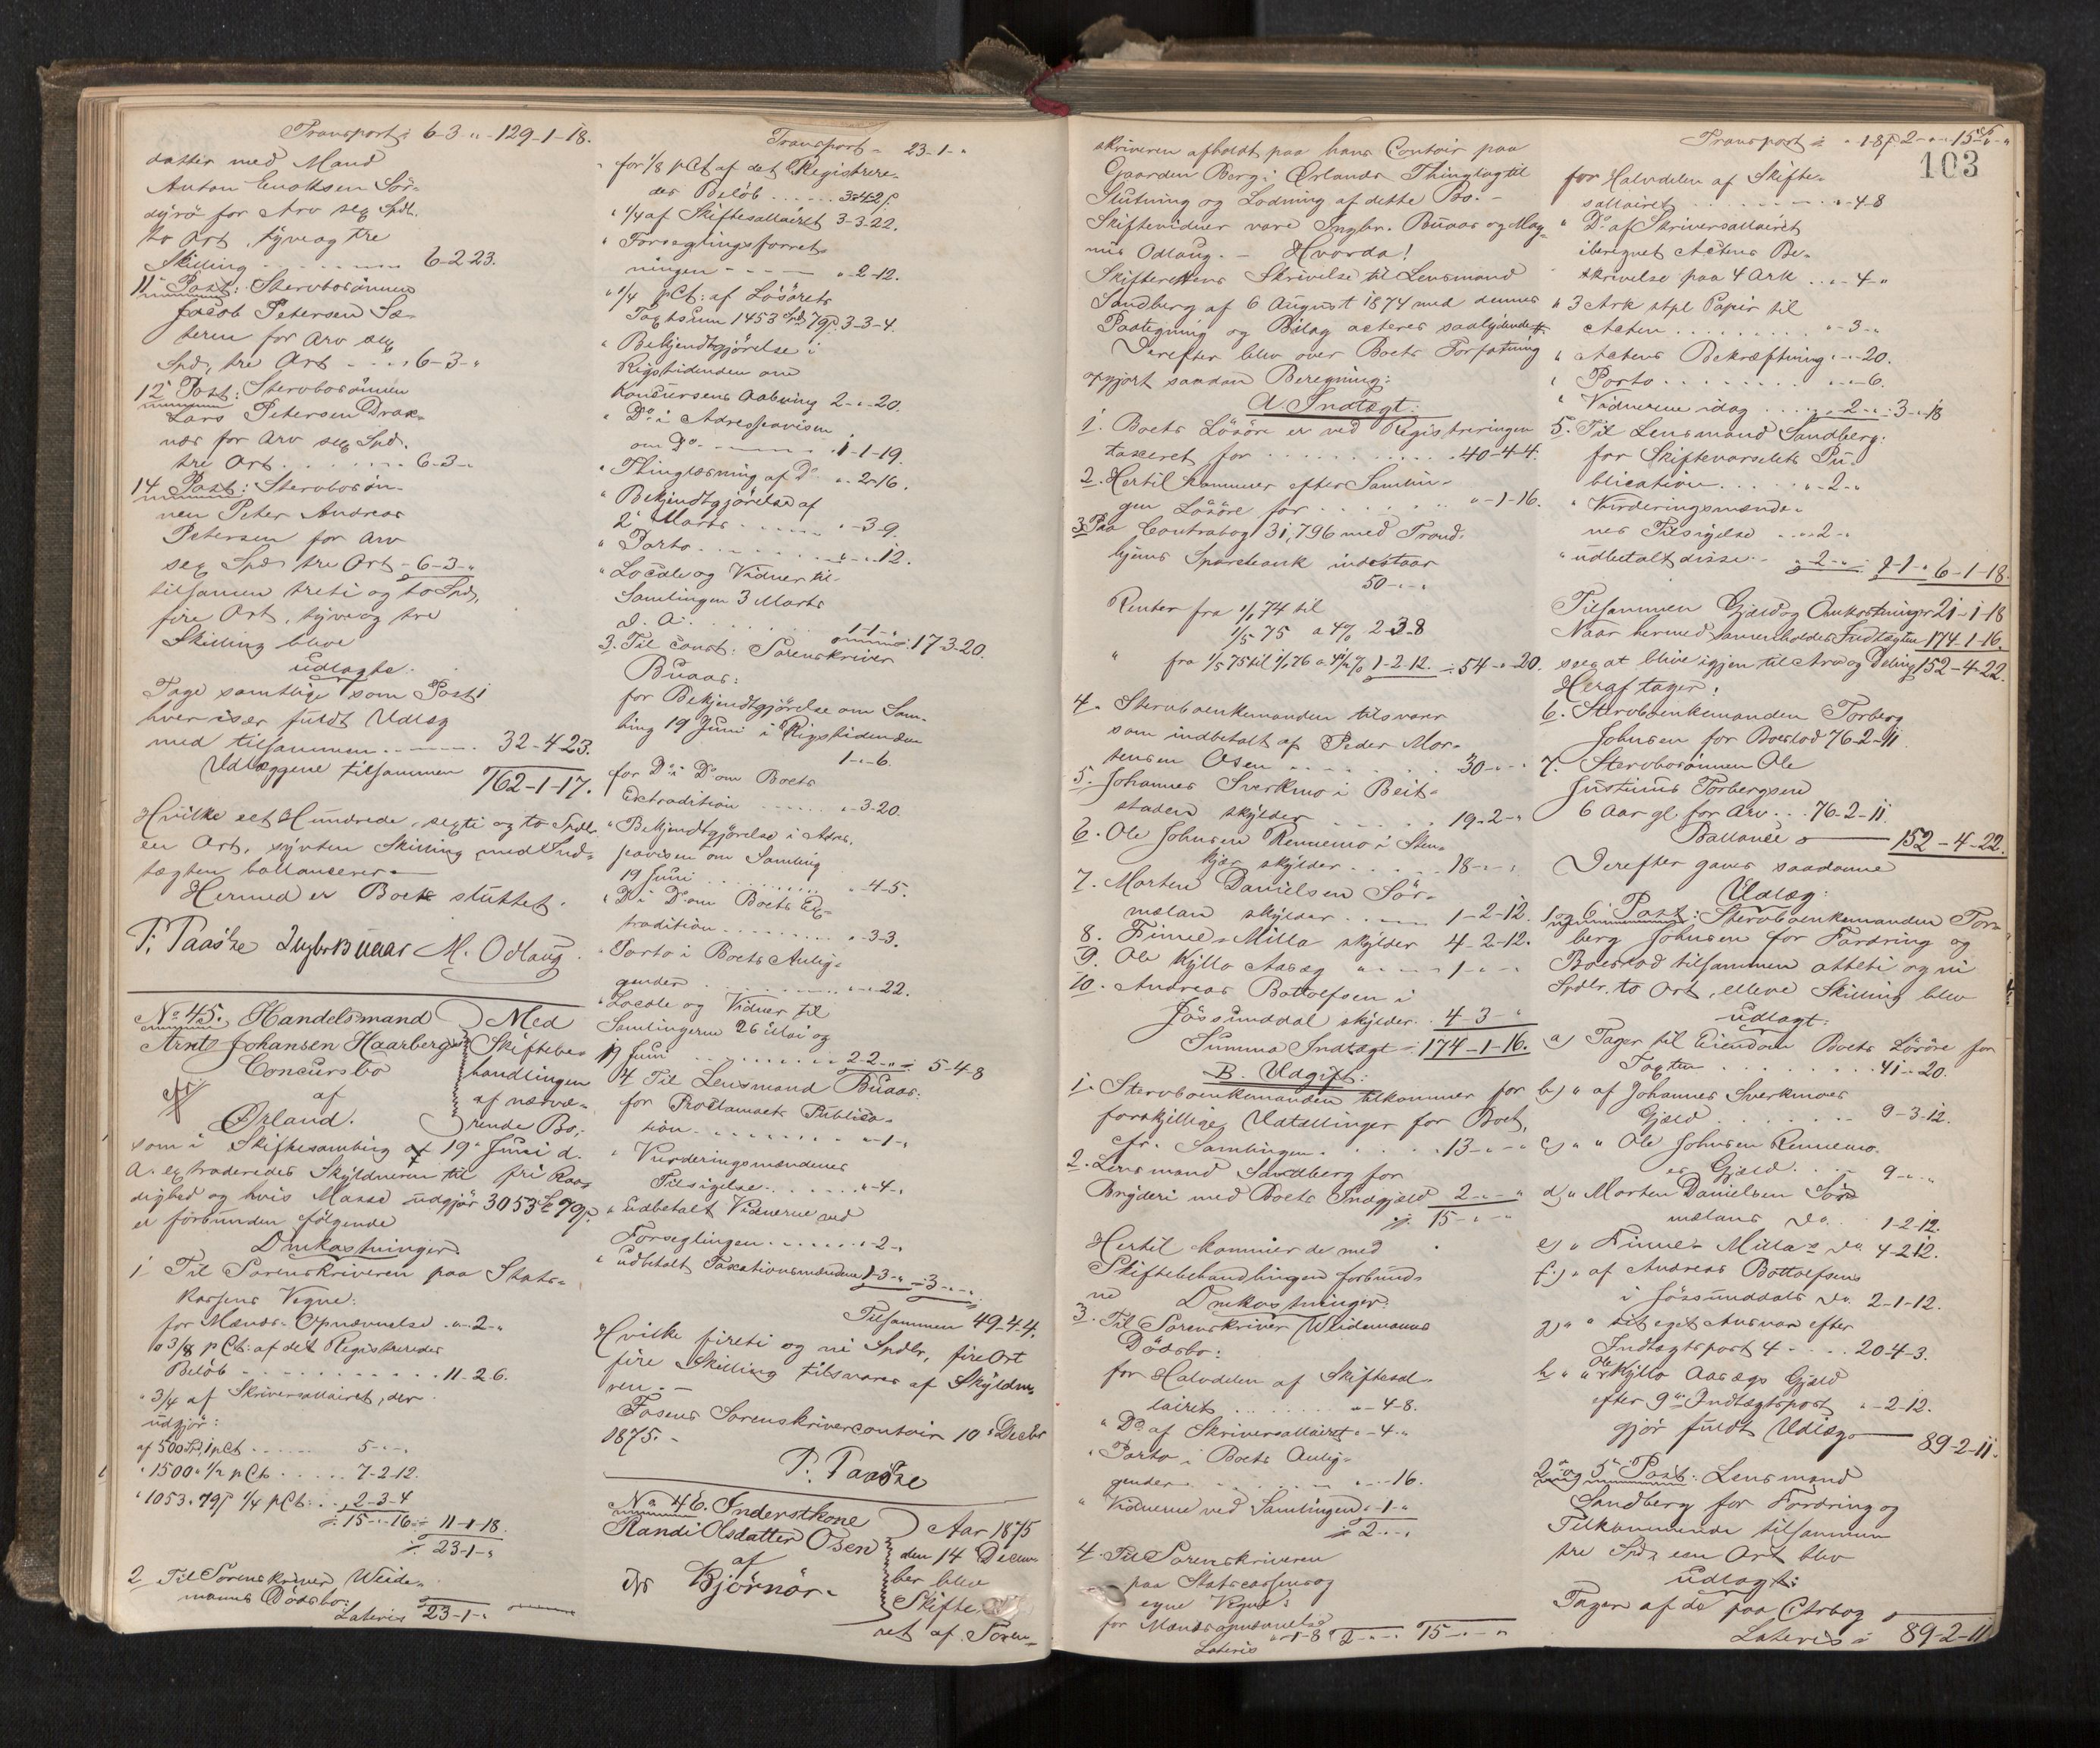 Transport: 6-3-" - 129-1-18.
datter med Mand
Anton Enoksen Sör-
dyrö for Arv sex Spdl.
to Ort, tyve og tre
Skilling 6-2-23.
11te Post: Stervbosönnen
Jacob Petersen Sæ-
teren for Arv sex
Spd, tre Ort 6-3-"
12te Post: Stervbosönnen
Lars Petersen
for Arv sex Spd.
tre Ort 6-3-"
14 Post: Stervbosön-
nen Peter Andreas
Petersen for Arv
sex Spd. tre Ort 6-3-"
tilsamen treti og to Spd,
fire Ort, tyve og tre
Skilling bleve
udlagte:
Tage samtlige som Post i
hver især fuldt Udlæg
med tilsammen 32-4-23.
Udlæggene tilsammen 162-1-17.
Hvilke eet Hundrede, sexti og to Spdl.
een Ort, sytten Skilling med Ind-
tægten ballancerer.
Hermed er Boet sluttet.
P. Paaske Ingbr Buaas M. Odlaug.
No 45. Handelsmand
Arnt Johansen Haarbergs
Concursbo
af
Ørland.
Med
Skiftebe-
handlingen
af nærvæ-
rende Bo,
som i Skiftesamling af 19de Juni d.
A. extraderedes Skyldneren til fri Raa-
dighed og hvis Masse udgjør 3053 Sp 79 s.
er forbunden følgende
Omkostninger
1 Til Sorenskriveren paa Stats-
kassens Vegne:
for Mænds-Opnævnelse "-2-"
" 3/8 pCt: af det Registreredes
Beløb 11-2-6.
" 3/4 af Skriversallairet, der
udgjør:
af 500 Sp, 1 pCt 5-"-"
" 1500 " 1/2 pCt 7-2-12.
" 1053 " 79 s 1/4 pCt: 2-3-4
15-"-16 11-1-18.
23-1-"
2 Til Sorenskriver Weide-
manns Dødsbo:
Lateris 23-1-"
Transport 23-1-"
for 1/8 pCt af det Registrere-
des Beløb 3-4-2
" 1/4 af Skiftesallairet 3-3-22.
" Forseglingsforret-
ningen "-2-12.
" 1/4 pCt: af Lösörets
Taxtsum 1453 Spd 79 s 3-3-4.
" Bekjendtgjørelse i
Rigstidenden om
Concursens Aabning 2-"-20.
" Do i Adresseavisen
om Do 1-1-19.
" Thinglæsning af Do "-2-16.
" Bekjendtgjørelse af
2 Marts "-3-9.
" Porto "-"-12.
" Locale og Vidner til
Samlingen 3 Marts
d. A. 1-1-" 17-3-20.
3. Til const: Sorenskriver
Buaas:
for Bekjendtgjørelse om Sam-
ling 19 Juni i Rigstidenden
1-"-6.
for Do i Do om Boets
Extradition "-3-20.
" Bekjendtgjørelse i Adres-
seavisen om Samling
19 Juni "-4-5.
" Do i Do om Boets Ex-
tradition "-3-3.
" Porto i Boets Anlig-
gender "-"-22.
" Locale og Vidner til
Samlingerne 26 Mai og
19 Juni 2-2-" 5-4-8
4 Til Lensmand Buaas:
for Proclamaets Publica-
tion "-1-"
" Vurderingsmændenes
Tilsigelse "-4-"
" Udbetalt Vidnerne ved
Forseglingen "-2-"
" udbetalt Taxationsmændene 1-3-" 3-"-"
Tilsammen 49-4-4.
Hvilke fireti og ni Spdlr, fire Ort
fire Skilling tilsvares af Skyldne-
ren.
Fosens Sorenskrivercontoir 10de Decbr
1875.
P. Paaske
No 46. Inderstkone
Randi Olsdatter Osen
af
Bjørnør.
Aar 1875
den 14 Decem-
ber blev
Skifte
ret af Soren-
103
skriveren afholdt paa hans Contoir paa
Gaarden Berg i Ørlands Thinglag til
Slutning og Lodning af dette Bo.
Skiftevidner vare Ingbr. Buaas og Mag-
nus Odlaug. - Hvorda!
Skifterettens Skrivelse til Lensmand
Sandberg af 6 August 1874 med dennes
Paategning og Bilag acteres saalydende
Derefter blev over Boets Forfatning
opgjort saadan Beregning:
A Indtægt:
1. Boets Lösöre er ved Registreringen
taxeret for 40-4-4.
2. Hertil kommer efter Samlin-
gen Lösöre for "-1-16.
3. Paa Contrabog 31,796 med Trond-
hjems Sparebank indestaar
50-"-"
Renter fra 1/1 74 til
1/5 75 a 4% 2-3-8
" fra 1/5 75 til 1/1 76 a 4 1/2 % 1-2-12. 54-"-20.
4. Stervboenkemanden tilsvarer
som indbetalt af Peder Mor-
tensen Osen 30-"-"
5. Johannes Sverkmo i Beit-
staden skylder 19-2-"
6. Ole Johnsen Rennemo i Sten-
kjær skylder 18-"-"
7. Morten Danielsen Sør-
mælan skylder 1-2-12.
8. Finne-Milla skylder 4-2-12.
9. Ole Kyllo Aasæg " 1-"-"
10. Andreas Bottolfsen i
Jössunddal skylder 4-3-"
Summa Indtægt 174-1-16.
B. Udgift:
1. Stervboenkemanden tilkommer for
forskjellige Udtællinger for Boet,
cfr. Samlingen 13-"-"
2. Lensmand Sandberg for
Bryderi med Boets Indgjæld 2-"-"
15-"-"
Hertil kommer de med
Skiftebehandlingen forbund-
ne Omkostninger:
3. Til Sorenskriver Weidemanns
Dödsbo:
for Halvdelen af Skiftesal-
lairet "-4-8.
" Do af Skriversallairet "-4-"
" Porto i Boets Anlig-
gender "-"-16.
" Vidnerne ved Samlingen "-1-"
2-"-"
4. Til Sorenskriveren
paa Statscassens og
egne Vegne:
for Mændsopnævnelse
Lateris "-1-8 2-"-" 15-"-"
Transport "-1-8 2-"-" 15-"-"
for Halvdelen af Skifte-
sallairet "-4-8
" Do af Skriversallairet
iberegnet Actens Be-
skrivelse paa 4 Ark "-4-"
" 3 Ark stpl Papir til
Acten "-3-"
" Actens Bekræftning "-"-20.
" Porto "-"-6.
" Vidnerne idag "-2-" 3-"-18
5. Til Lensmand Sandberg:
for Skiftevarselets Pu-
blication "-2-"
" Vurderingsmænde-
nes Tilsigelse "-2-"
" udbetalt disse "-2-" 1-1-" 6-1-18.
Tilsammen Gjæld og Omkostninger 21-1-18
Naar hermed sammenholdes Indtægten 174-1-16.
sees at blive igjen til Arv og Deling 152-4-22.
Heraf tager:
6. Stervboenkemanden Torberg
Johnsen for Boeslod 76-2-11.
7. Stervbosönnen Ole
Justinus Torbergsen
6 Aar gl. for Arv 76-2-11.
Ballance 152-4-22.
Derefter gaves saadanne
Udlæg:
1 og 6te Post: Stervboenkemanden Tor-
berg Johnsen for Fordring og
Boeslod tilsammen otteti og ni
Spdlr. to Ort, elleve Skilling blev
udlagt:
a) Tager til Eiendom Boets Lösöre for
Taxten 41-"-20.
b) " af Johannes Sverkmoes
Gjæld 9-3-12.
c) " " Ole Johnsen Rennemo-
es Gjæld 9-"-"
d) " Morten Danielsen Sør-
mælans do. 1-2-12.
e) " Finne-Millas do 4-2-12.
f.) " af Andreas Bottolfsens
i Jössunddals do. 2-1-12.
g) " " sit eget Ansvar efter
Indtægtspost 4 20-4-3.
h " " Ole Kyllo Aasægs Gjæld
efter 9de Indtægtspost "-2-12.
gjør fuldt Udlæg 89-2-11.
2den og 5te Post: Lensmand
Sandberg for Fordring og
Tilkommende tilsammen
tre Spd, een Ort blev
udlagt:
Tager af do paa Ctrbog
Lateris 89-2-11